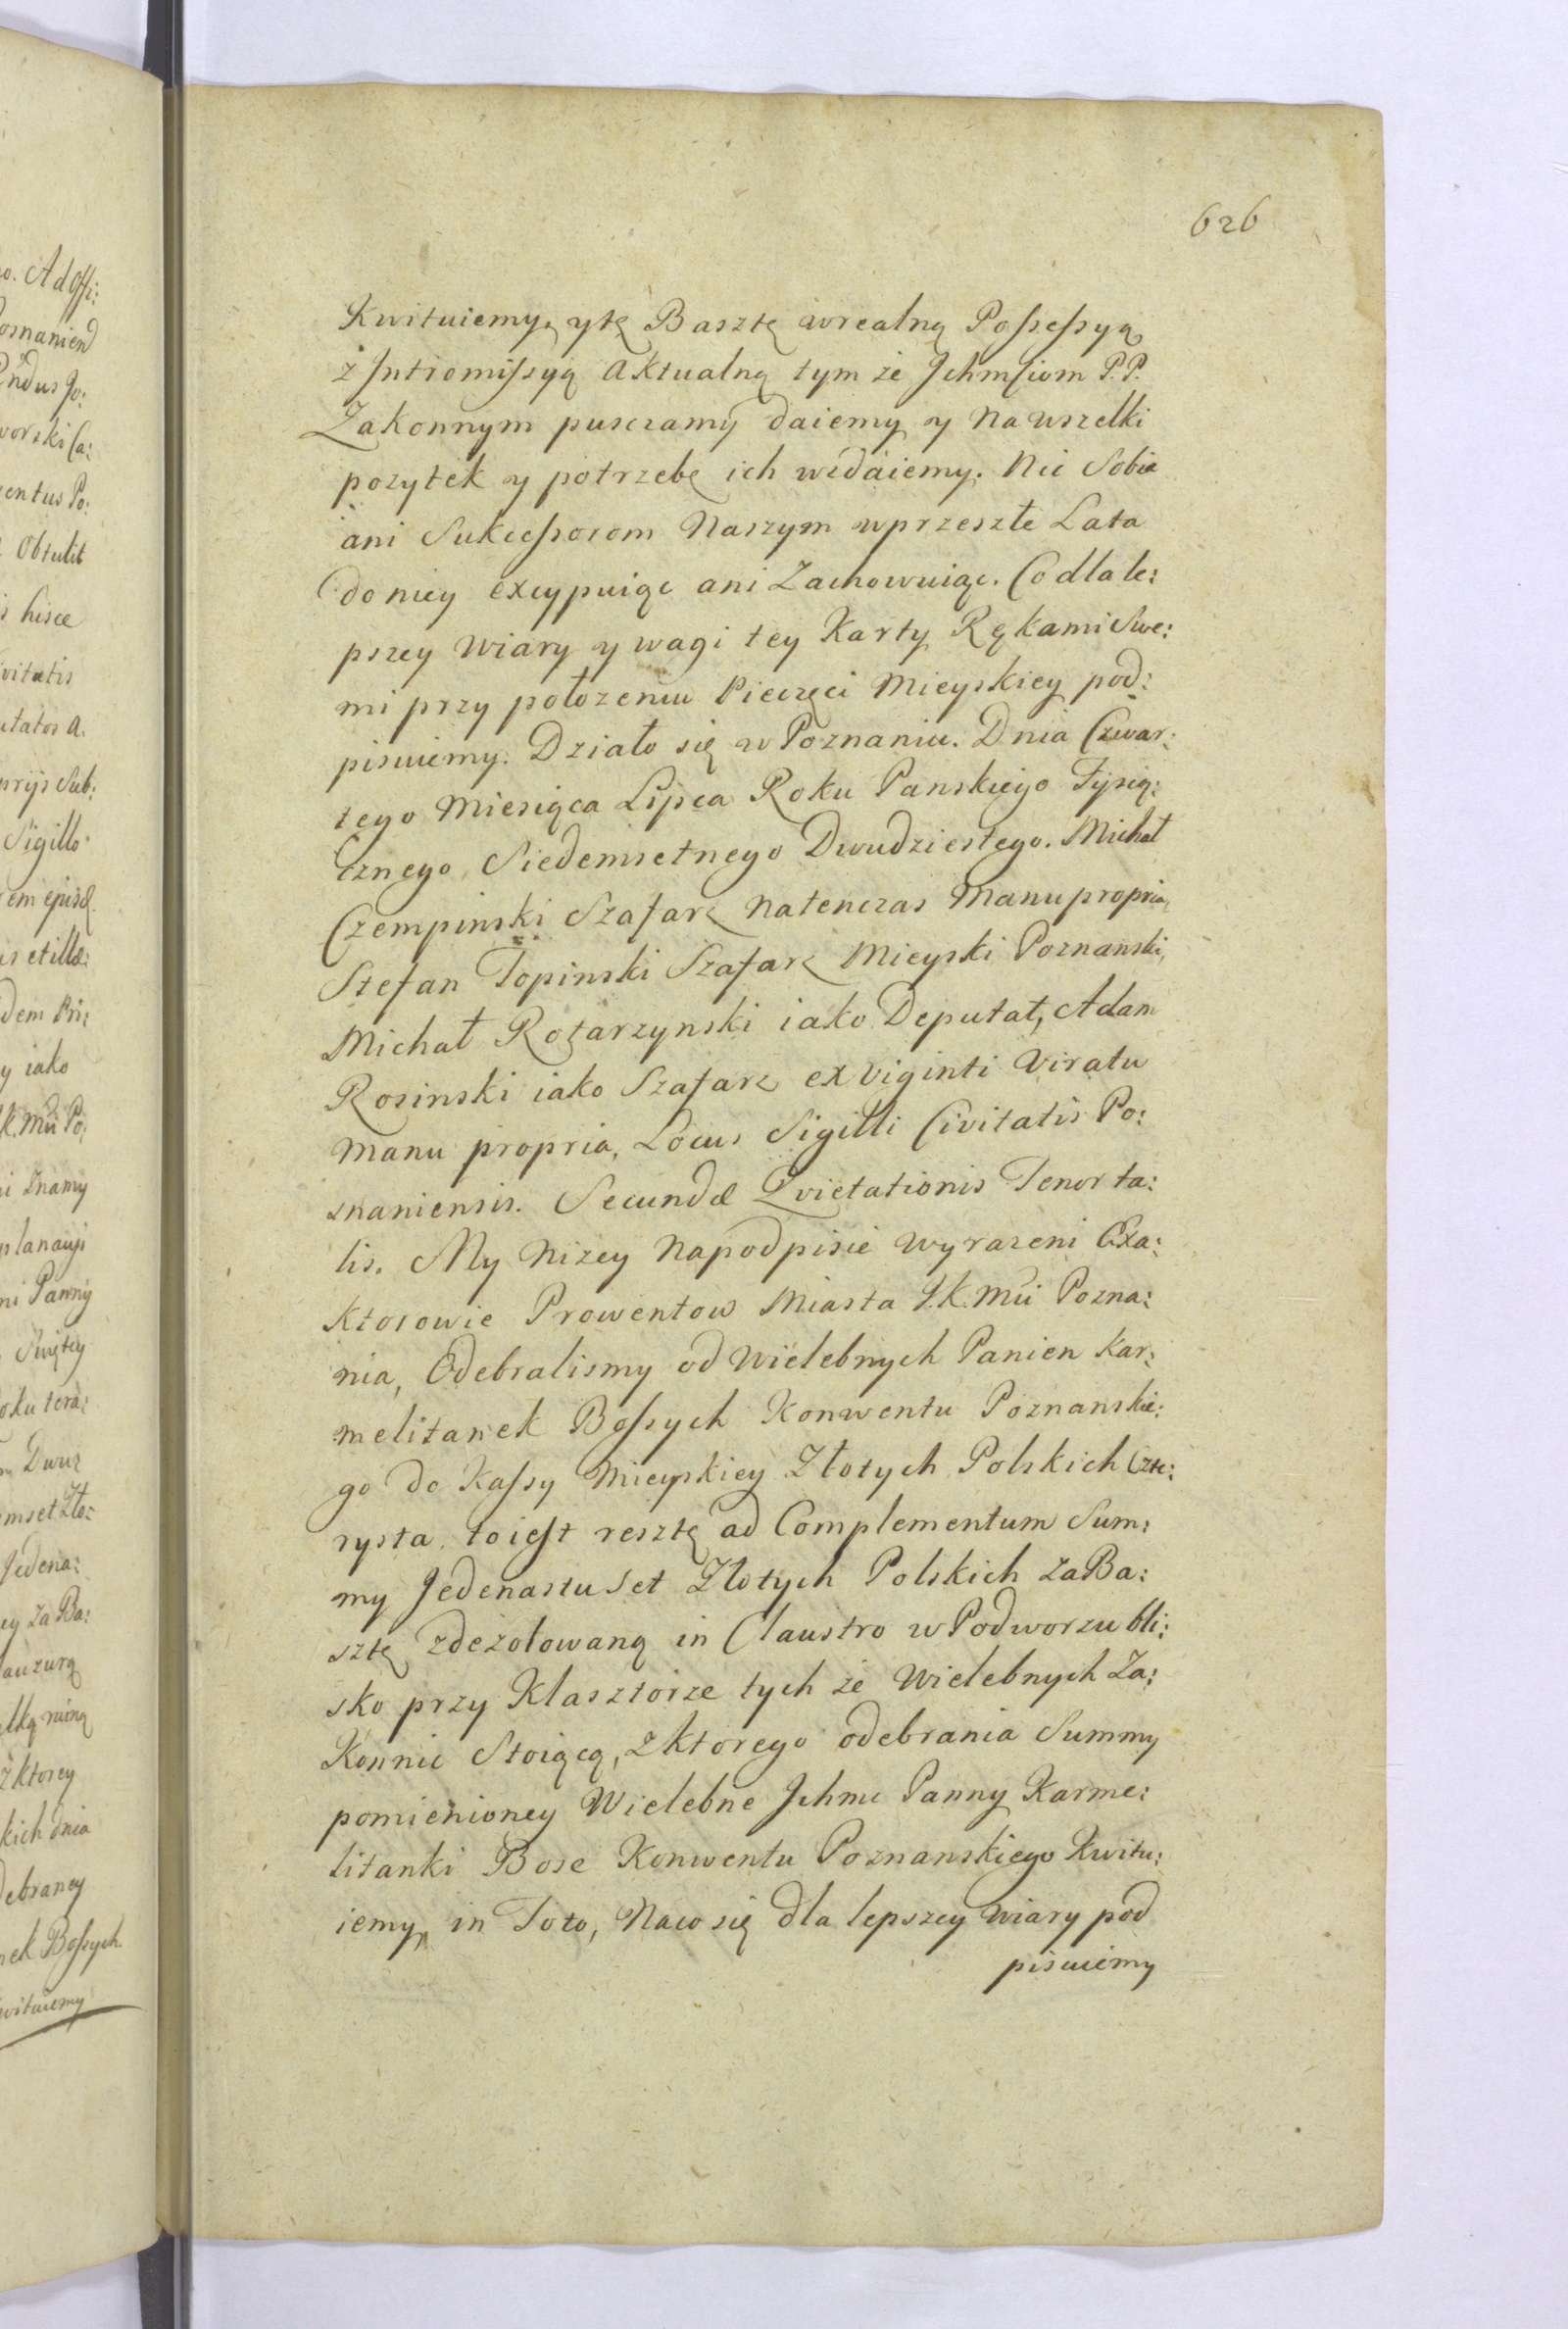 626
Kwituiemy, y tę Basztę w realną Possessyą
z Intromissyą aktualną tym że Jchmściom P.P.
Zakonnym puszczamy daiemy y na wszelki
pozytek y potrzebę ich wzdaiemy. Nic Sobie
ani Sukcessorom Naszym wprzeszłe Lata
do niey excypuiąc ani Zachowuiąc. Co dla le:
pszey wiary y wagi tey Karty Rękami Swe:
mi przy położeniu Pieczęci Mieyskiey pod:
pisuiemy. Działo się w Poznaniu. Dnia Czwar:
tego Miesiąca Lipca Roku Panskiego Tysią:
cznego Siedemsetnego Dwudziestego. Michał
Czempinski Szafarz natenczas Manu propria,
Stefan Topinski Szafarz Mieyski Poznanski,
Michał Rozarzynski iako Deputat, Adam
Rosinski iako Szafarz ex viginti Viratu
manu propria, Locus Sigilli Civitatis Po:
snaniensis. Secundæ Qvietationis Tenor ta:
lis. My niżey na podpisie wyrazeni Exa:
ktorowie Prowentow Miasta J.K.Mci Pozna:
nia, Odebralismy od Wielebnych Panien Kar:
melitanek Bossych Konwentu Poznanskie:
go do Kassy Mieyskiey Złotych Polskich Czte:
rysta to iest resztę ad Complementum Sum:
my Jedenastu Set Złotych Polskich za Ba:
sztę zdezolowaną in Claustro w Podworzu bli:
sko przy Klasztorze tych że Wielebnych Za:
Konnic Stoiącą, z ktorego odebrania Summy
pomienioney Wielebne Jchmc Panny Karme:
litanki Bose Konwentu Poznanskiego Kwitu:
iemy, in Toto, Naco się dla lepszey wiary pod
pisuiemy